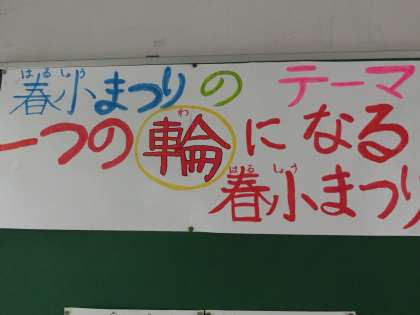 はるしょう
春小まつりのテーマ
わ
一つの輪になる
はるしょう
春小まつり